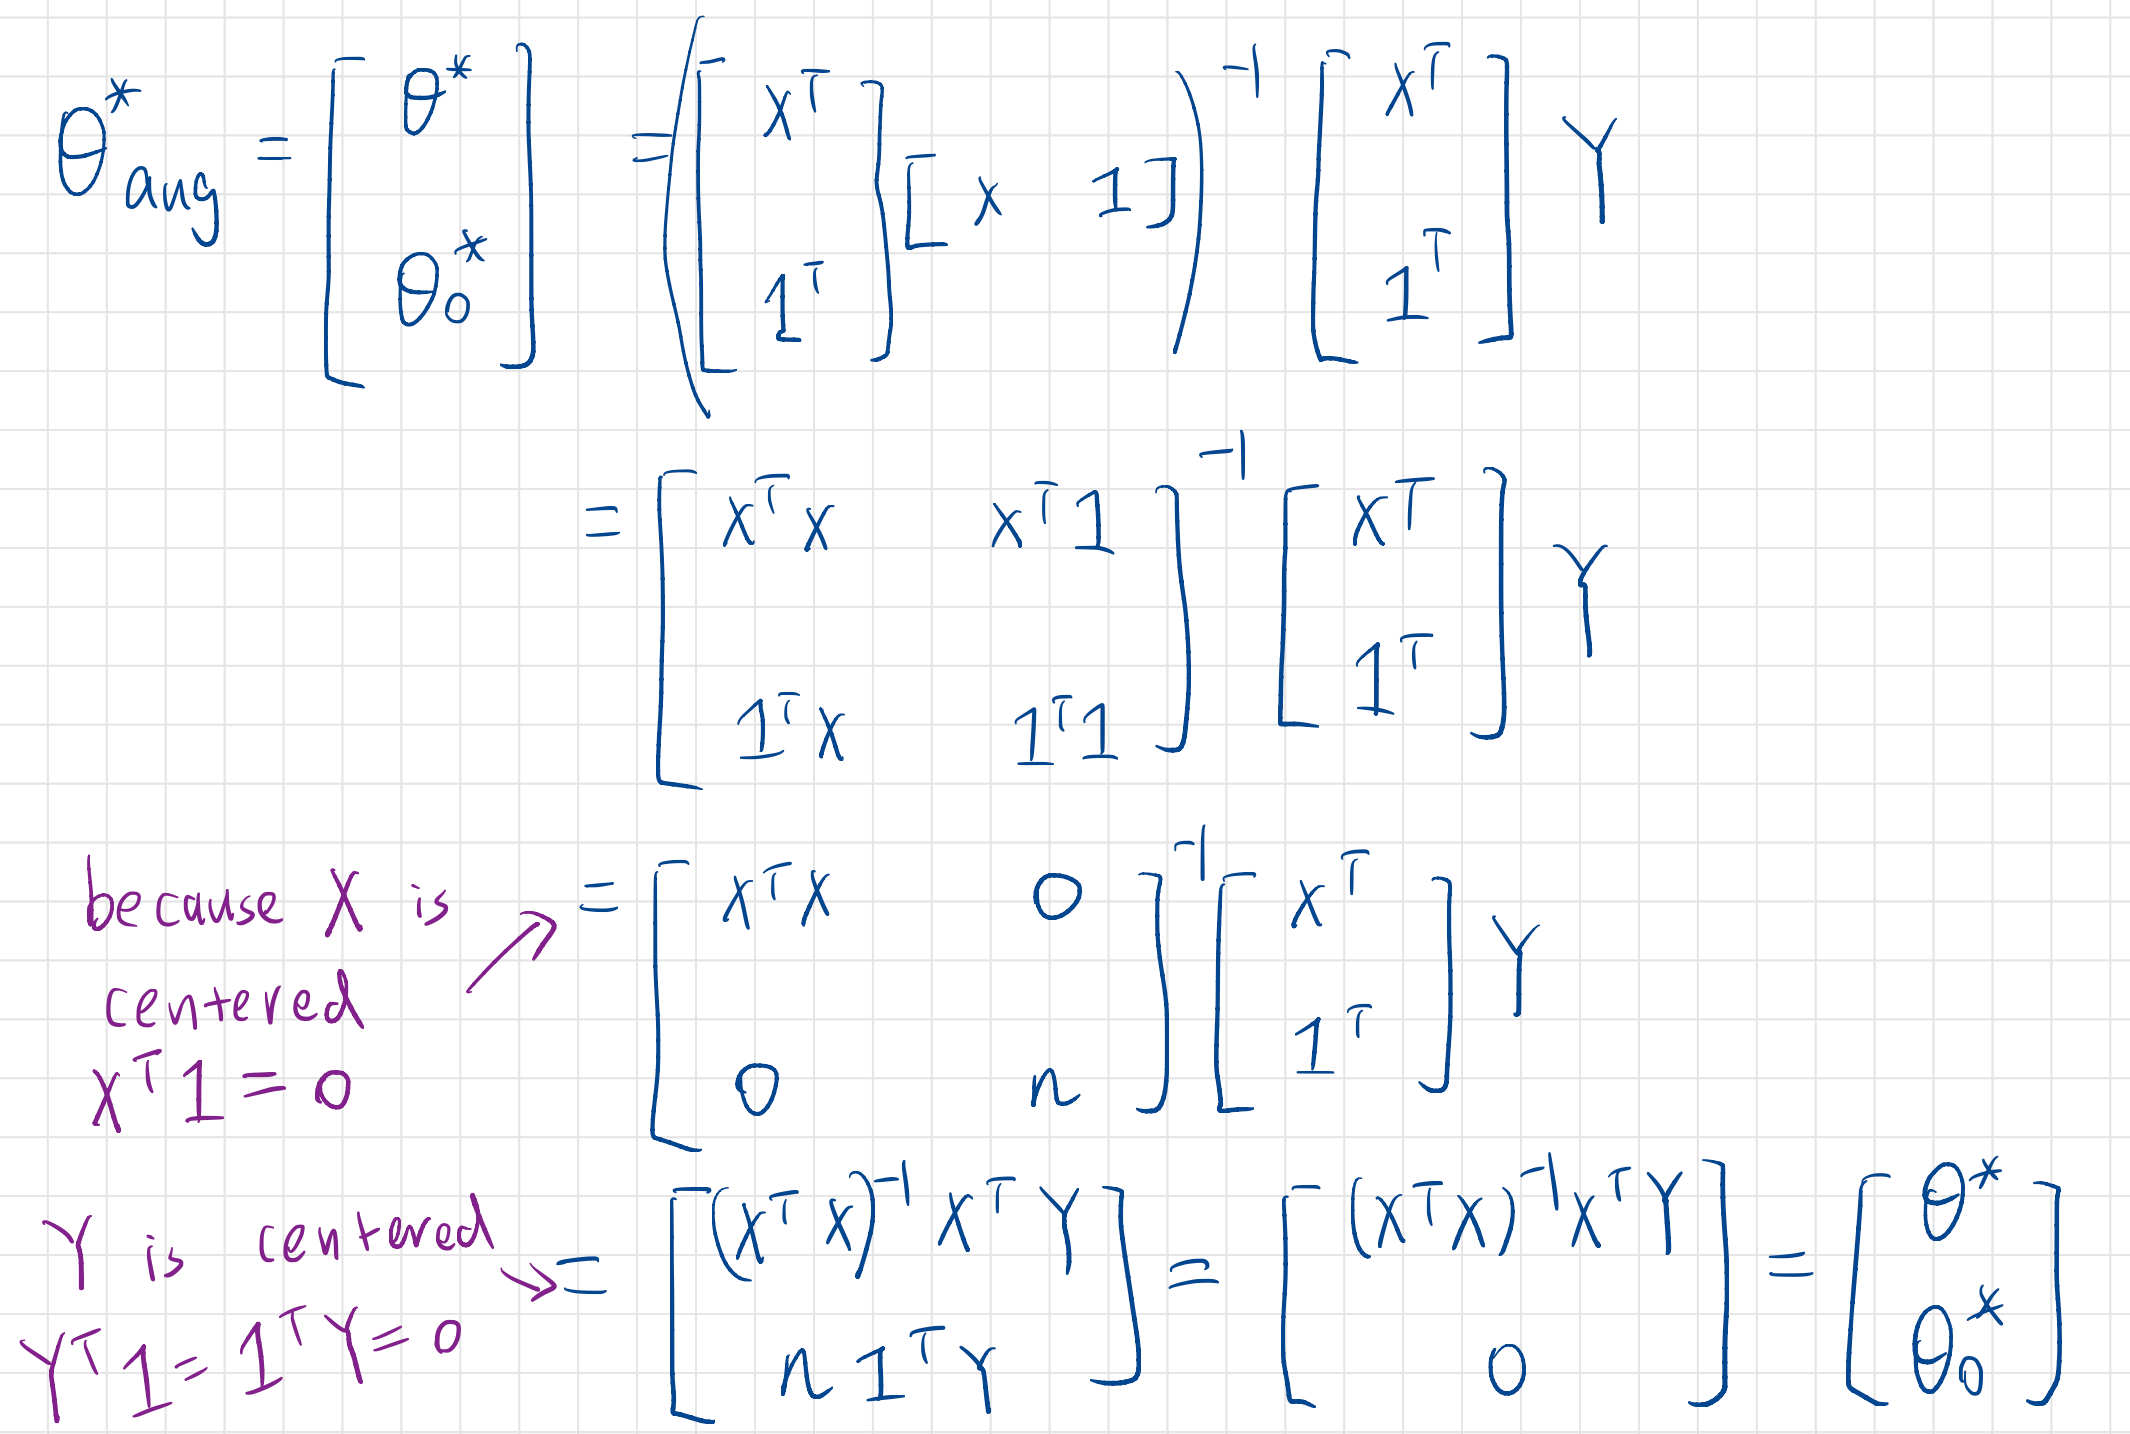 θ*_aug = [θ* ; θ₀*] = ([X^T ; 1^T] [X 1])^-1 [X^T ; 1^T] Y
= [X^T X  X^T 1 ; 1^T X  1^T 1]^-1 [X^T ; 1^T] Y
because X is centered X^T 1 = 0
= [X^T X  0 ; 0  n]^-1 [X^T ; 1^T] Y
Y is centered Y^T 1 = 1^T Y = 0
= [(X^T X)^-1 X^T Y ; n 1^T Y] = [(X^T X)^-1 X^T Y ; 0] = [θ* ; θ₀*]